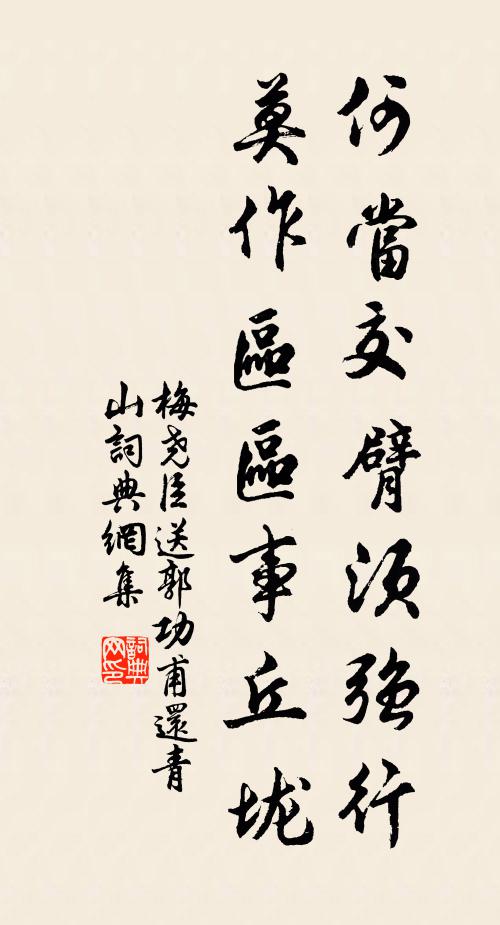 何當交臂須強行
莫作區區事丘壠
梅堯臣送郭功甫還青
山詞典網集
詞典網印